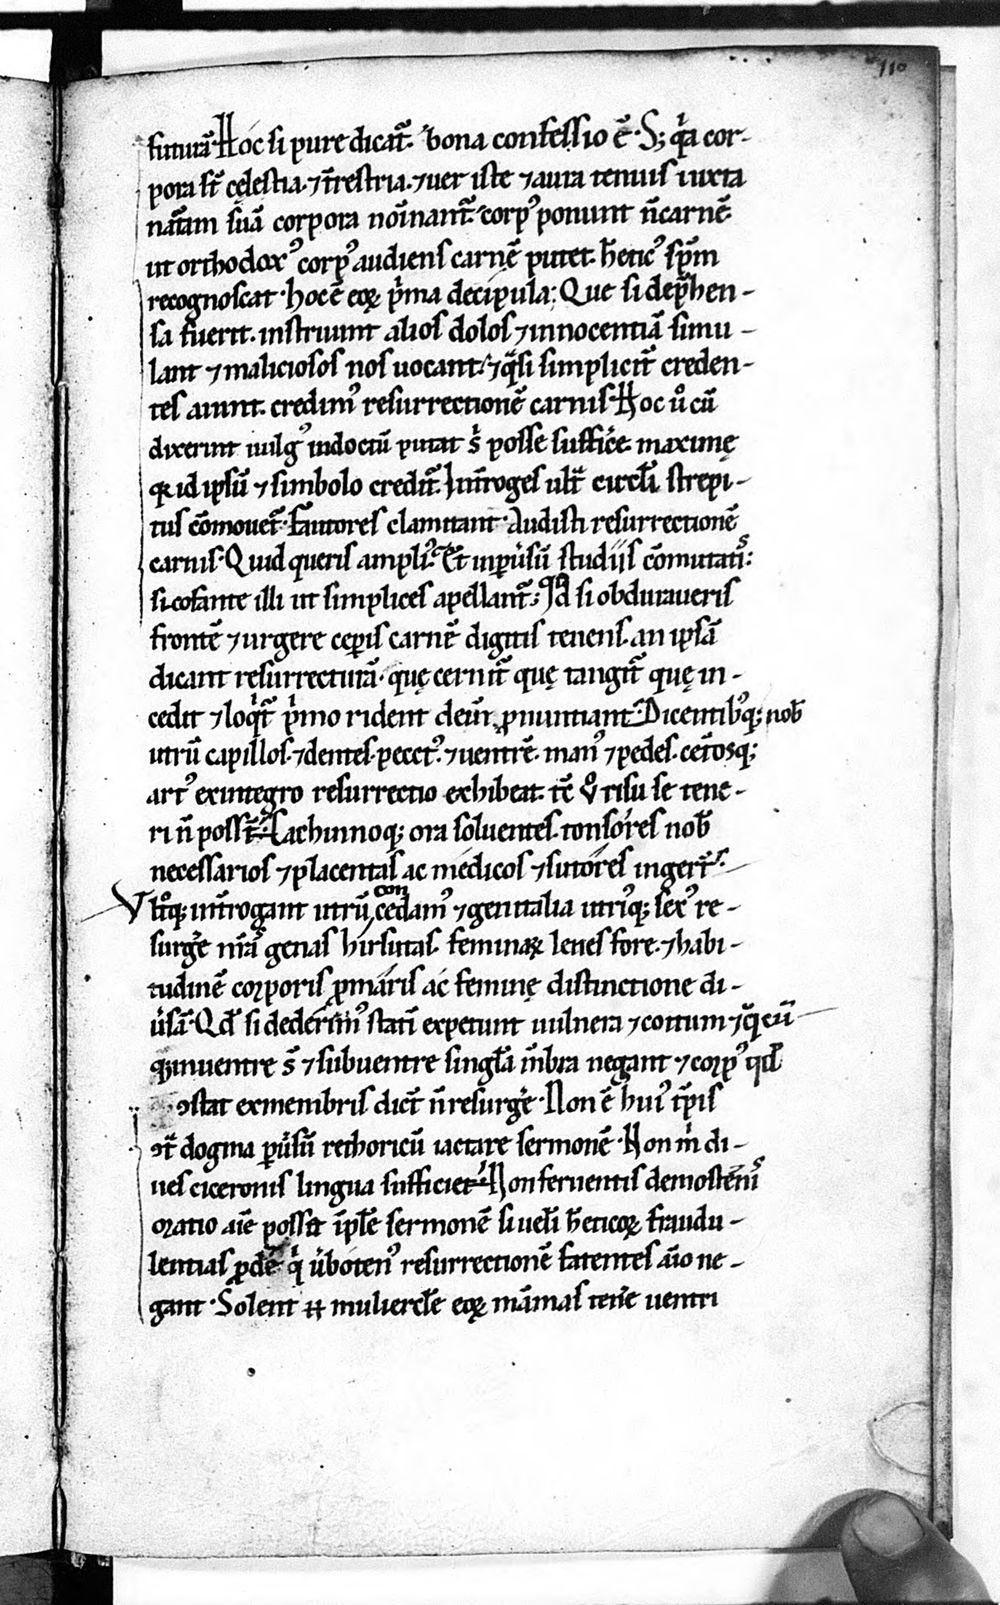 110
futurā Hoc si pure dicat̄. bona confessio ē. S; q̇a cor-
pora st̄ cęlestia. ⁊ t̄restria. ⁊ uer iste ⁊ aura tenuis iuxta
nat̄am suā corpora noīnant̄. corp᷒ ponunt n̄ carnē.
ut orthodox᷒ corp᷒ audiens carnē putet. h̄etic᷒ sp̄m
recognoscat. hoc ē eoꝝ p̄ma decipula; Que si dep̄hen-
sa fuerit. instruunt alios dolos ⁊ innocentiā simu-
lant ⁊ maliciosos nos uocant. ⁊ q̄si simplicit̄ creden-
tes aiunt. credim᷒ resurrectionē carnis Hoc ů cū
dixerint uulg᷒ indoctū putat s̄ posse suffic̄e. maximę
q̇ id ipsū ⁊ simbolo credit̄. Int̄roges ult̄ circl̄i strepi-
tus cōmouet̄. fautores clamitant. Audisti resurrectionē
carnis. Quid queris ampli᷒. Et inpūsū studiis cōmutatis:
sicofante illi ut simplices apellant̄. Qd si obduraueris
frontē ⁊ urgere ceperis carnē digitis tenens. an ipsā
dicant resurrecturā. quę cernit̄ quę tangit̄ quę in-
cedit ⁊ loq̇t̄ p̄mo rident dein̄ ꝓnuntiant. Dicentib᷒q; nob̄
utrū capillos. ⁊ dentes. pect᷒. ⁊ uentrē. man᷒ ⁊ pedes. cet̄osq;
art᷒ exintegro resurrectio exhibeat. tē v̊ risu se tene-
ri n̄ poss̄t. Cachinnoq; ora soluentes. tonsores nob̄
necessarios ⁊ placentas ac medicos ⁊ sutores ingert̄.
Vlt̊q; int̄rogant utrū con cedam᷒ ⁊ genitalia utriq; sex᷒ re-
surḡe nr̄ā genas hirsutas. feminaꝝ leues fore. ⁊ habi-
tudinē corporis ꝓ maris ac feminę distinctione di-
ūsā. Qd̄ si dederim᷒ statī expetunt uulnera ⁊ coitum ⁊ q̄ cū
q; inuentre s̄ ⁊ subuentre singl̄a m̄bra negant ⁊ corp᷒ qd̄
ↄstat exmembris dict̄ n̄ resurḡe. Non ē hui᷒ t̄pis
ↄt̄ dogma p̄ūsū rethoricū iactare sermonē. Non m̄ di-
ues ciceronis lingua sufficiet. Non feruentis demosteni᷒
oratio aīe possit īple sermonē si uel̄i h̄eticoꝝ fraudu-
lentias ꝓdē q̇ ūboten᷒ resurrectionē fatentes aīo ne-
gant. Solent ⁊ muliercl̄e eoꝝ māmas ten̄e uentri